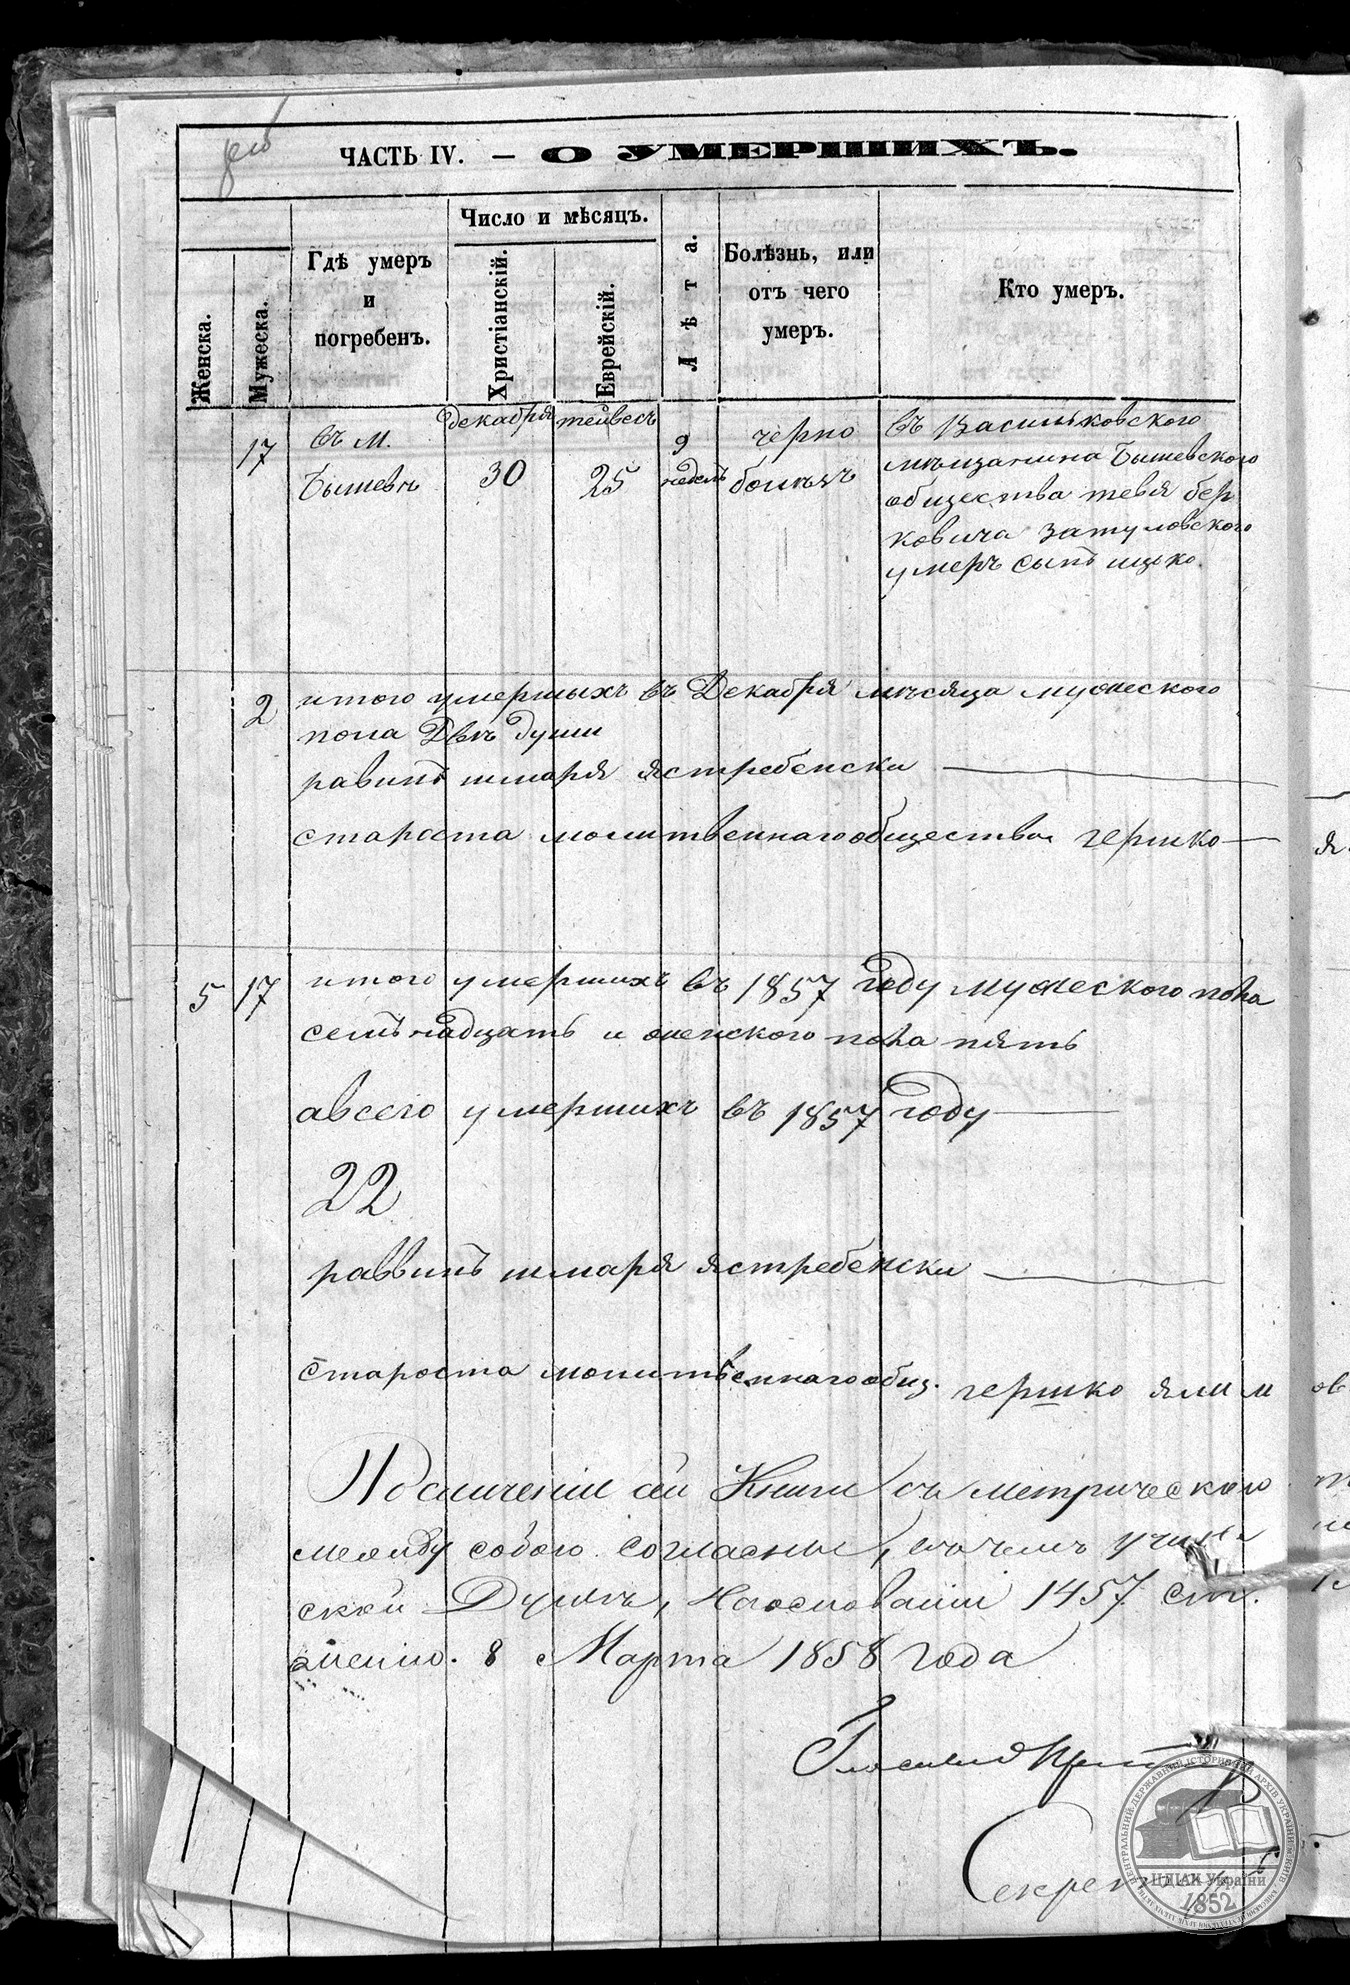 ЧАСТЬ IV. — О УМЕРШИХЪ.
Женска.
Мужеска.
Гдѣ умеръ
и
погребенъ.
Число и мѣсяцъ.
Христіанскій.
Еврейскій.
Лѣта.
Болѣзнь, или
отъ чего
умеръ.
Кто умеръ.
17
въ м.
Бышевѣ
декабря
30
тейвесъ
25
9
недель
черно
болѣзъ
въ Васильковского
мѣщанина Бышевского
общества тевя бер
ковича Затуловского
умеръ сынъ ицко.
2
итого умершыхъ въ Декабря мѣсяца мужеского
пола Двѣ души
равинъ шмаря ястребенски
староста молитвеннаго общества гершко
5 17
итого умершихъ въ 1857 году мужеского пола
семънадцать и женского пола пять
авсего умершихъ въ 1857 году
22
раввинъ шмаря ястребенски
староста молитвеннаго общ. гершко ялим
По сличеніи сей Книги съ метрическою
между собою согласны, въ чемъ
ской Думѣ, на основаніи 1457 ст.
8 Марта 1858 года
Гласный
Секретарь
ЦДІАК України
1852